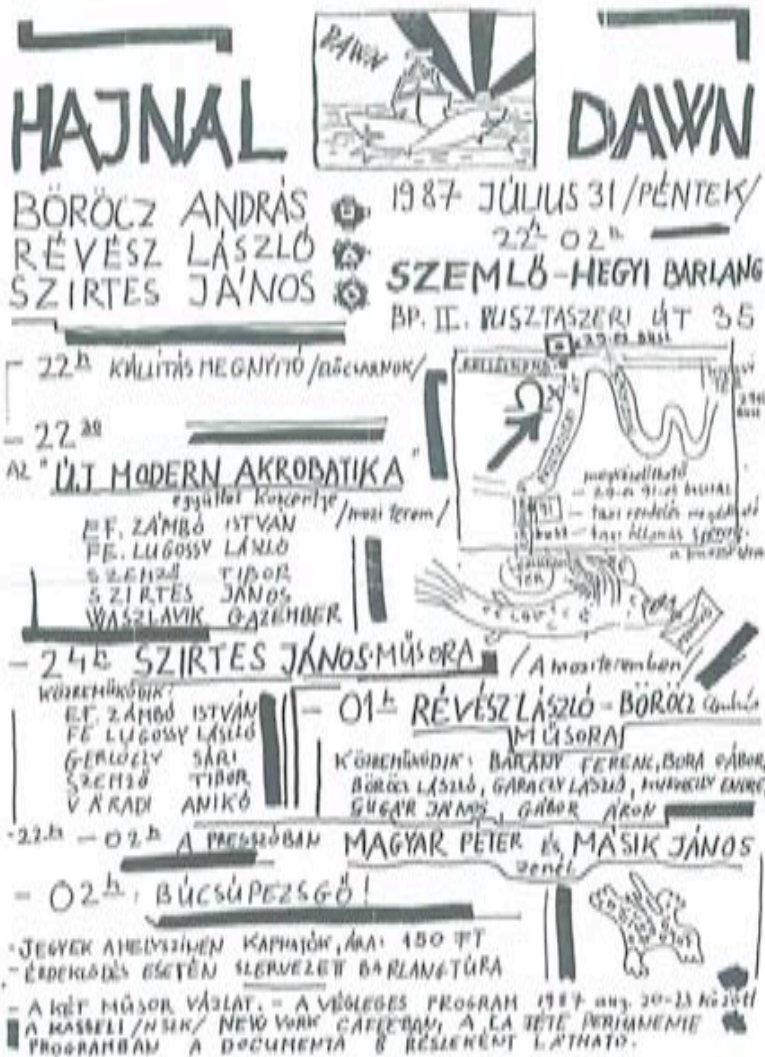 DAWN
HAJNAL DAWN
BÖRÖCZ ANDRÁS
RÉVÉSZ LÁSZLÓ
SZIRTES JÁNOS
1987 JÚLIUS 31 /PÉNTEK/
22h 02h
SZEMLŐ-HEGYI BARLANG
BP. II. PUSZTASZERI ÚT 35
- 22h KIÁLLÍTÁS MEGNYITÓ
- 22 30
AZ "ÚJ MODERN AKROBATIKA"
együttes koncertje
/mozi terem/
EF. ZÁMBÓ ISTVÁN
FE. LUGOSSY LÁSZLÓ
SZEMZŐ TIBOR
SZIRTES JÁNOS
WASZLAVIK GAZEMBER
29-es BUSZ
megközelíthető
- 29-es 91-es busszal
- taxi rendelés megoldható
- taxi állomás
TÉR
- 24h SZIRTES JÁNOS MŰSORA /A moziteremben/
KÖZREMŰKÖDIK:
EF. ZÁMBÓ ISTVÁN
FE LUGOSSY LÁSZLÓ
GERLÓCZY SÁRI
SZEMZŐ TIBOR
VÁRADI ANIKÓ
- 01h RÉVÉSZ LÁSZLÓ - BÖRÖCZ András
MŰSORA
KÖZREMŰKÖDIK: BARÁNY FERENC, BORA GÁBOR,
BÖRÖCZ LÁSZLÓ, GARACZY LÁSZLÓ,
SUGÁR JÁNOS, GÁBOR ÁRON
-22h - 02h A PRESSZÓBAN MAGYAR PÉTER ÉS MÁSIK JÁNOS
zenél
- 02h: BÚCSÚPEZSGŐ!
- JEGYEK A HELYSZÍNEN KAPHATÓK, ÁRA: 150 FT
- ÉRDEKLŐDÉS ESETÉN SZERVEZETT BARLANGTÚRA
- A KÉT MŰSOR VÁZLAT. - A VÉGLEGES PROGRAM 1987 aug. 20-23 között
A KASSELI /NSZK/ NEW YORK CAFÉBAN, A LA JETÉE PERMANENTE
PROGRAMBAN A DOCUMENTA 8 RÉSZEKÉNT LÁTHATÓ.